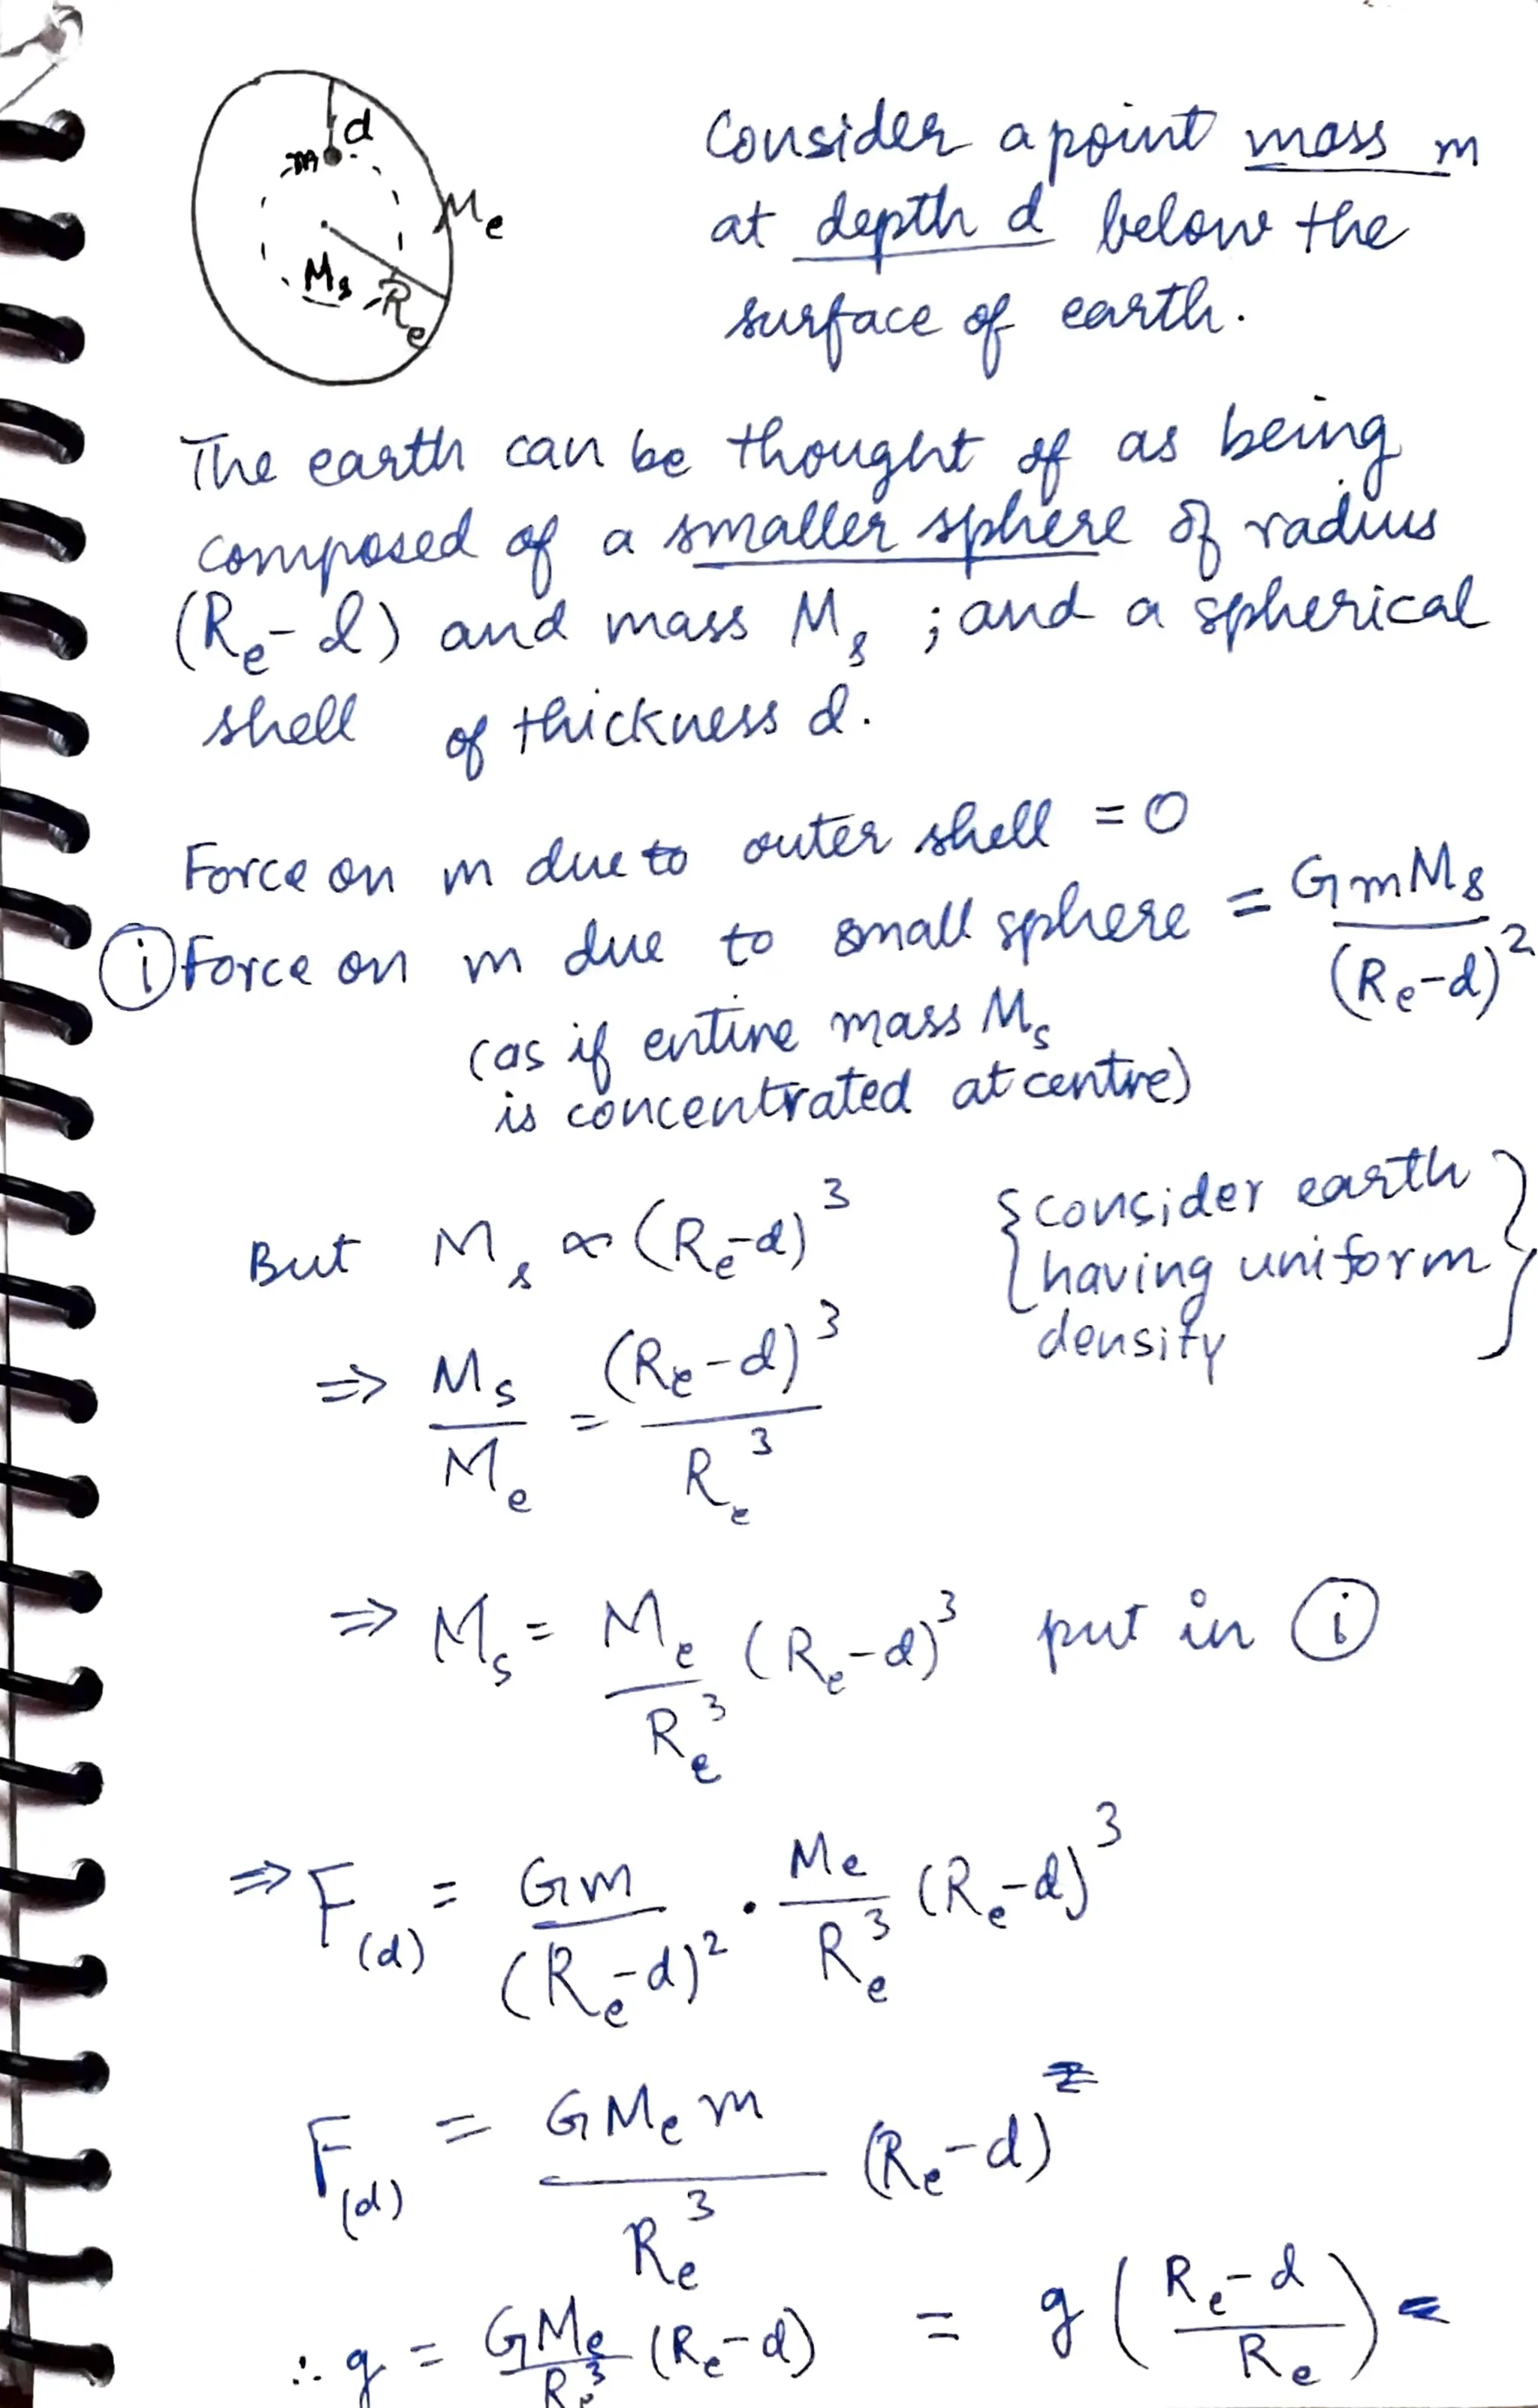 d
m
Me
Ms
Re
Consider a point mass m
at depth d below the
surface of earth.
The earth can be thought of as being
composed of a smaller sphere of radius
(Re-d) and mass Ms ; and a spherical
shell of thickness d.
Force on m due to outer shell = 0
(i) Force on m due to small sphere = GmMs / (Re-d)²
(as if entire mass Ms
is concentrated at centre)
But Ms ∝ (Re-d)³ {consider earth
having uniform
density}
⇒ Ms/Me = (Re-d)³/Re³
⇒ Ms = Me/Re³ (Re-d)³ put in (i)
⇒ F(d) = Gm/(Re-d)² · Me/Re³ (Re-d)³
F(d) = GMem/Re³ (Re-d)
∴ g = GMe/Re³ (Re-d) = g((Re-d)/Re)